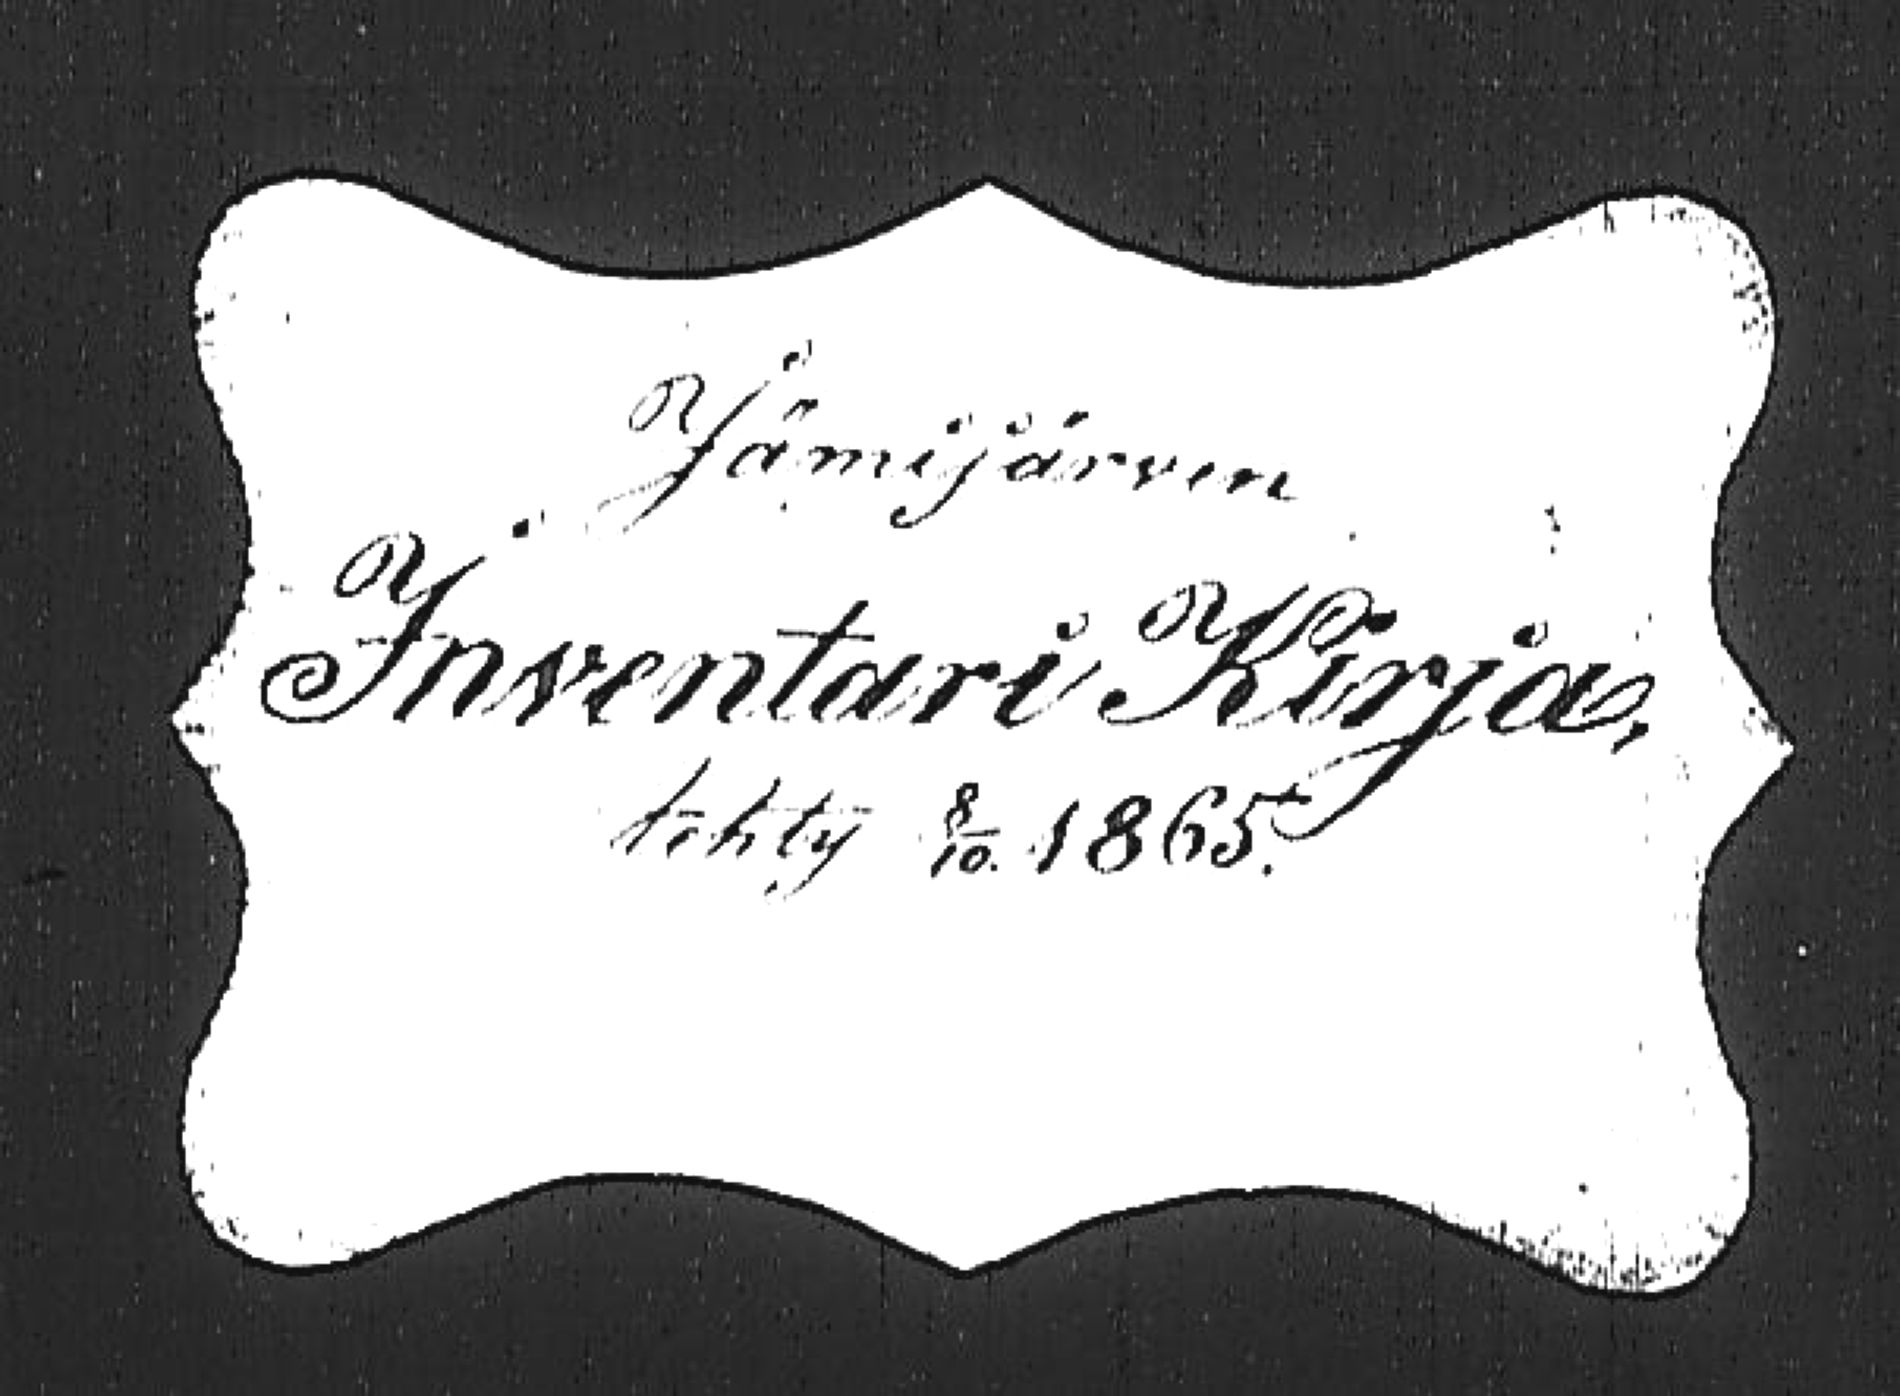 Jämijärven
Inventari Kirja,
tehty 8/10. 1865.